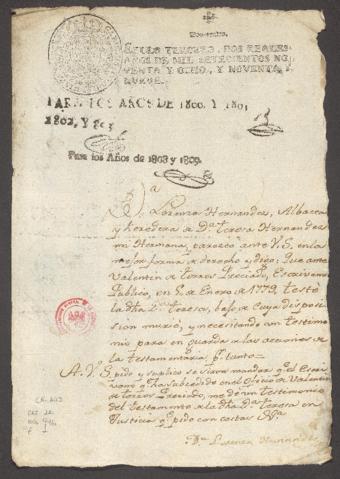 SELLO TERCERO, DOS REALES
AÑOS DE MIL SETECIENTOS NO
VENTA Y OCHO, Y NOVENTA Y
NUEVE.
PARA LOS AÑOS DE 1800. Y 801
1802, Y 803
Para los Años de 1808 y 1809.
Dª Lorenza Hernandes, Albacea
y heredera de Dª Teresa Hernandes
mi Hermana, paresco ante V.S. en la
mejor forma de derecho y digo: Que ante
Valentin de Torres Preciado, Escrivano
Publico, en 8 de Enero de 1779 testó
la dha Dª Teresa, bajo de cuya dispo
sision murió, y necesitando un testimo
nio para en guarda de las acciones de
la testamentaria, por tanto
A. V. S. pido y suplico se sirva mandar qe el Escri
vano qe ha subcedido en el oficio de Valentin
de Torres Preciado, me dé un testimonio
del testamento de la dha Dª Teresa en
Justicia qe pido con costas
Dª Lorenza Hernandes